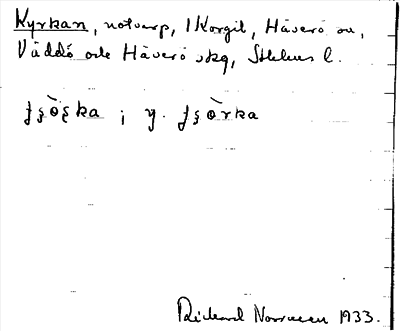 Kyrkan, notvarp, 1 Korgil, Häverö sn,
Väddö och Häverö skg, Sthlms l.
ʈʂö̀ʂka ; y. ʈʂö̀rka
Rickard Norrman 1933.